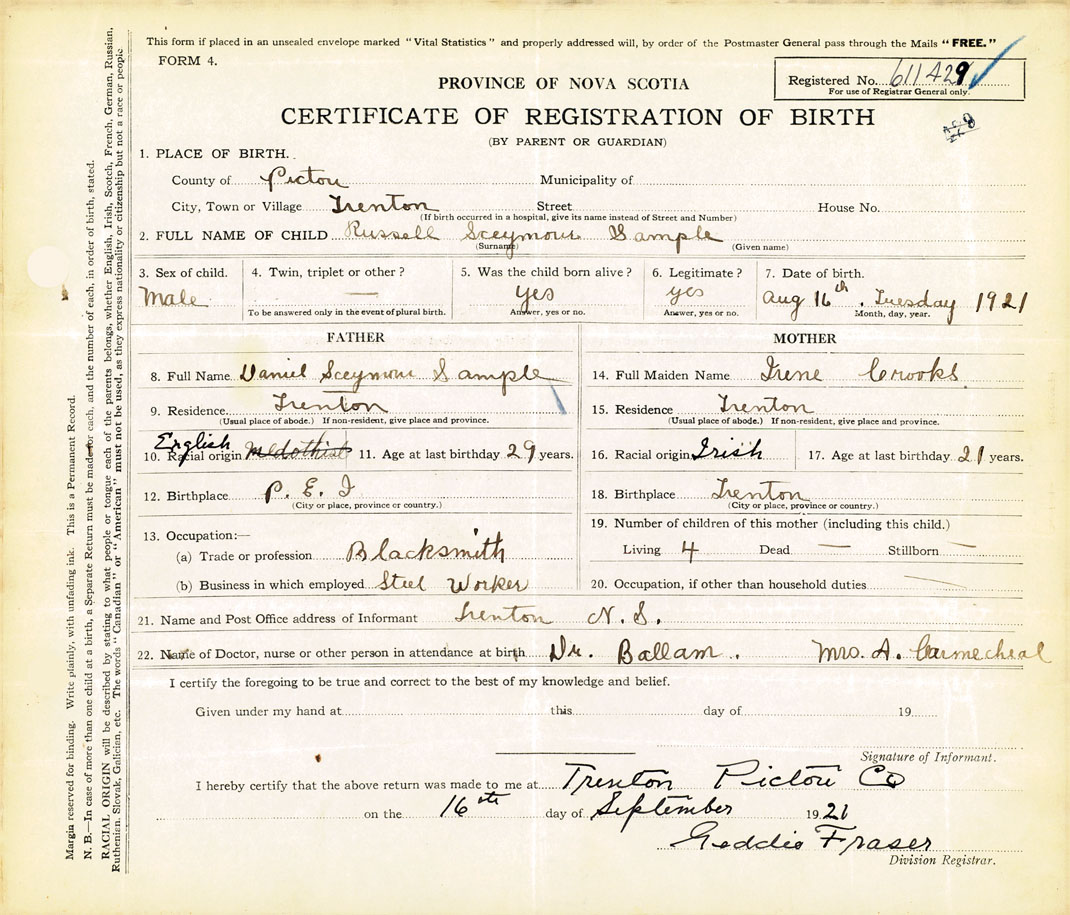 This form if placed in an unsealed envelope marked "Vital Statistics" and properly addressed will, by order of the Postmaster General pass through the Mails "FREE."
FORM 4.
Registered No. 611429
For use of Registrar General only.
PROVINCE OF NOVA SCOTIA
CERTIFICATE OF REGISTRATION OF BIRTH
(BY PARENT OR GUARDIAN)
1. PLACE OF BIRTH.
County of Pictou Municipality of
City, Town or Village Trenton Street House No.
(If birth occurred in a hospital, give its name instead of Street and Number)
2. FULL NAME OF CHILD Russell Sceymour Sample
(Surname) (Given name)
3. Sex of child. 4. Twin, triplet or other? 5. Was the child born alive? 6. Legitimate? 7. Date of birth.
Male — yes yes Aug 16th. Tuesday 1921
To be answered only in the event of plural birth. Answer, yes or no. Answer, yes or no. Month, day, year.
FATHER
8. Full Name Daniel Sceymour Sample
9. Residence Trenton
(Usual place of abode.) If non-resident, give place and province.
English
10. Racial origin Medothist 11. Age at last birthday 29 years.
12. Birthplace P. E. I
(City or place, province or country.)
13. Occupation:—
(a) Trade or profession Blacksmith
(b) Business in which employed Steel Worker
MOTHER
14. Full Maiden Name Irene Crooks
15. Residence Trenton
(Usual place of abode.) If non-resident, give place and province.
16. Racial origin Irish 17. Age at last birthday 21 years.
18. Birthplace Trenton
(City or place, province or country.)
19. Number of children of this mother (including this child.)
Living 4 Dead — Stillborn —
20. Occupation, if other than household duties
21. Name and Post Office address of Informant Trenton N. S.
22. Name of Doctor, nurse or other person in attendance at birth Dr. Ballam. Mrs. A. Carmecheal
I certify the foregoing to be true and correct to the best of my knowledge and belief.
Given under my hand at this day of 19
Signature of Informant.
I hereby certify that the above return was made to me at Trenton Pictou Co
on the 16th day of September 1921
Geddie Fraser
Division Registrar.
Margin reserved for binding. Write plainly, with unfading ink. This is a Permanent Record.
N. B.—In case of more than one child at a birth, a Separate Return must be made for each, and the number of each, in order of birth, stated.
RACIAL ORIGIN will be described by stating to what people or tongue each of the parents belongs, whether English, Irish, Scotch, French, German, Russian,
Ruthenian, Slovak, Galician, etc. The words "Canadian" or "American" must not be used, as they express nationality or citizenship but not a race or people